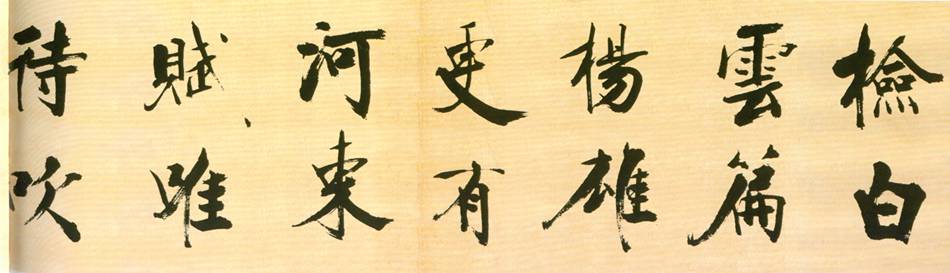 檢白
雲篇
楊雄
更有
河東
賦唯
待吹